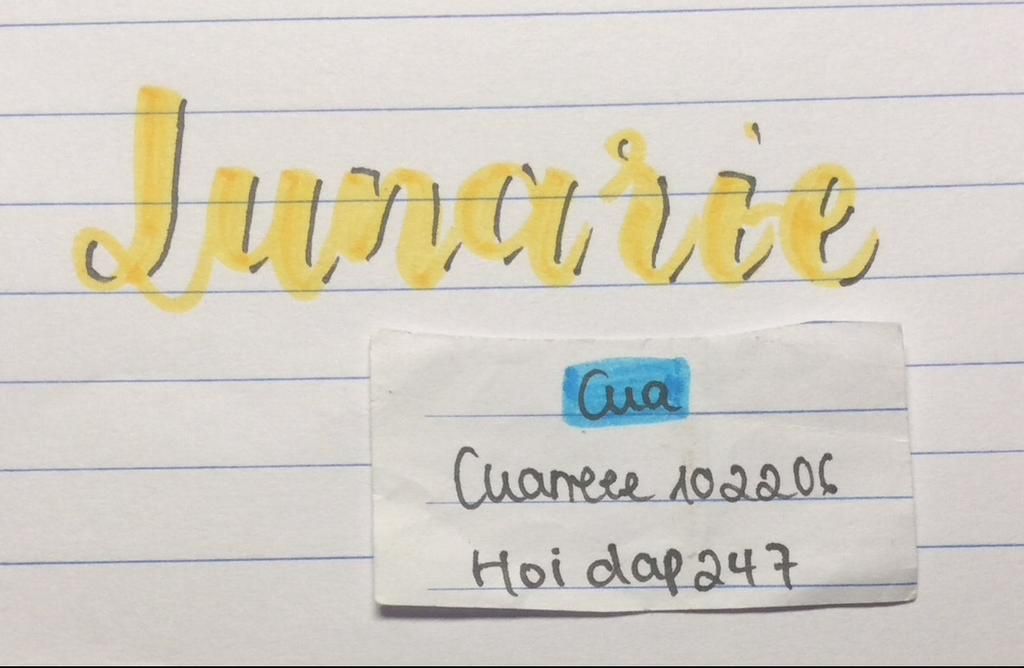 Lunarie
Cua
Cuarreee 102206
Hoi dap 247